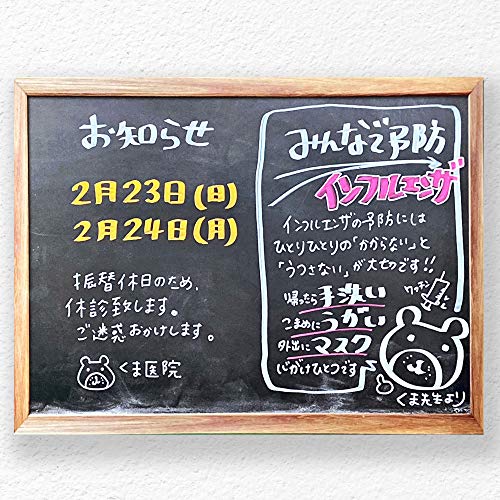 お知らせ
2月23日(日)
2月24日(月)
振替休日のため、
休診致します。
ご迷惑おかけします。
くま医院
みんなで予防
インフルエンザ
インフルエンザの予防には
ひとりひとりの「かからない」と
「うつさない」が大切です!!
帰ったら手洗い
こまめにうがい
外出にマスク
心がけひとつです
ワクチン
くま先生より